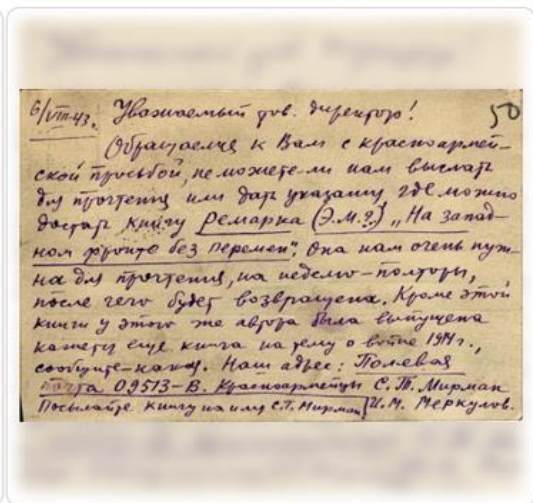 6/VIII-43. Уважаемый тов. директор! 50
Обращаемся к Вам с красноармей-
ской просьбой, не можете-ли нам выслать
для прочтения или дать указания, где можно
достать книгу Ремарка (Э.М.?) „На запад-
ном фронте без перемен". Она нам очень нуж-
на для прочтения, на неделю-полторы,
после чего будет возвращена. Кроме этой
книги у этого же автора была выпущена
кажется еще книга на тему о войне 1914 г.,
сообщите-какая. Наш адрес: Полевая
почта 09513-В. Красноармейцы С.Т. Мирман
Посылайте книгу на имя С.Т. Мирман И.М. Меркулов.